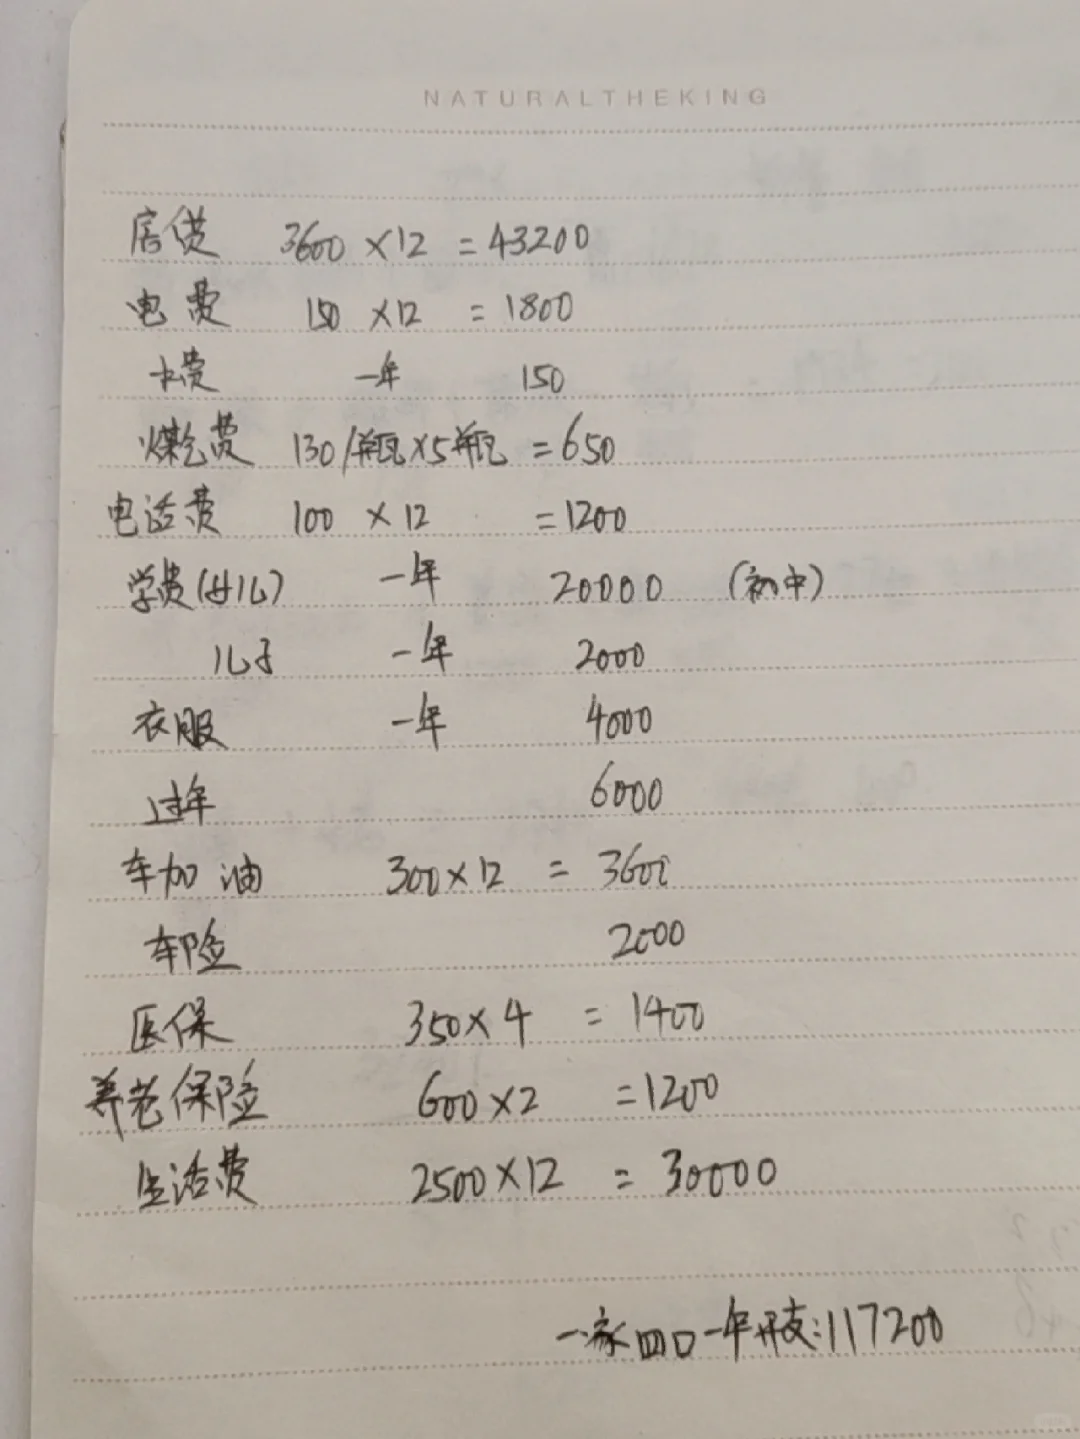 NATURALTHEKING
房贷 3600 × 12 = 43200
电费 150 × 12 = 1800
水费 一年 150
煤气费 130/瓶×5瓶 = 650
电话费 100 × 12 = 1200
学费(女儿) 一年 20000 (初中)
儿子 一年 2000
衣服 一年 4000
过年 6000
车加油 300×12 = 3600
车险 2000
医保 350×4 = 1400
养老保险 600×2 = 1200
生活费 2500×12 = 30000
一家四口一年开支:117200